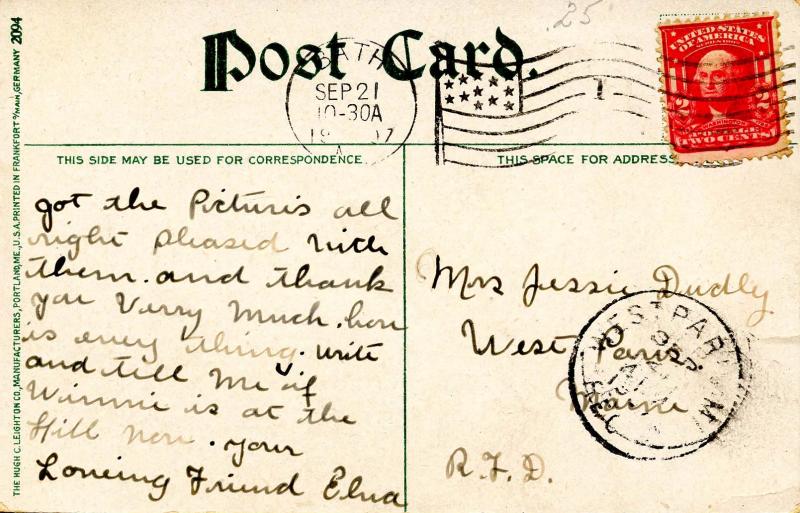 25
Post Card.
BATH
SEP 21
10-30A
19 07
1
UNITED STATES
OF AMERICA
2 2
WASHINGTON
POSTAGE
TWO CENTS
THIS SIDE MAY BE USED FOR CORRESPONDENCE.
THIS SPACE FOR ADDRESS
got the Picturis all
right pleased with
them. and thank
you Verry Much. hou
is every thing. write
and till Me if
Winnie is at the
Hill Now. your
Loveing Friend Elna
Mrs Jessie Dudly
West Paris
Maine
R.F.D.
WEST PARIS
SEP
REC'D
THE HUGH C. LEIGHTON CO., MANUFACTURERS, PORTLAND, ME., U.S.A. PRINTED IN FRANKFORT o/MAIN, GERMANY 2094